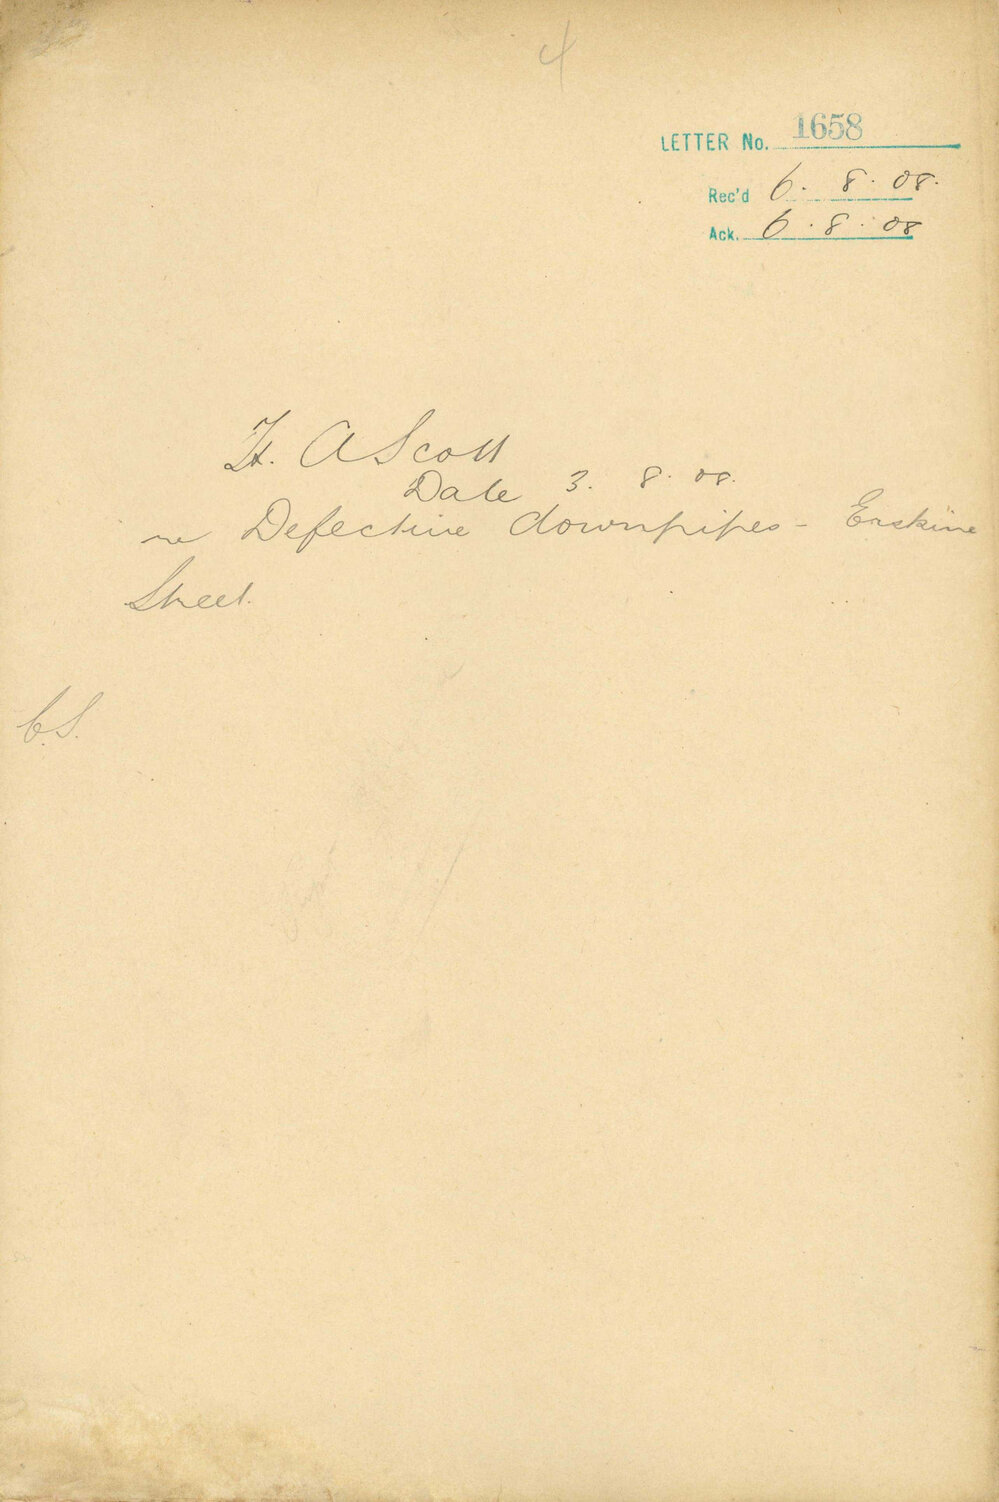 4
LETTER No. 1658
Rec'd 6. 8. 08.
Ack. 6. 8. 08
H. A Scott
Date 3. 8. 08.
re Defective downpipes - Erskine
Street.
C.S.